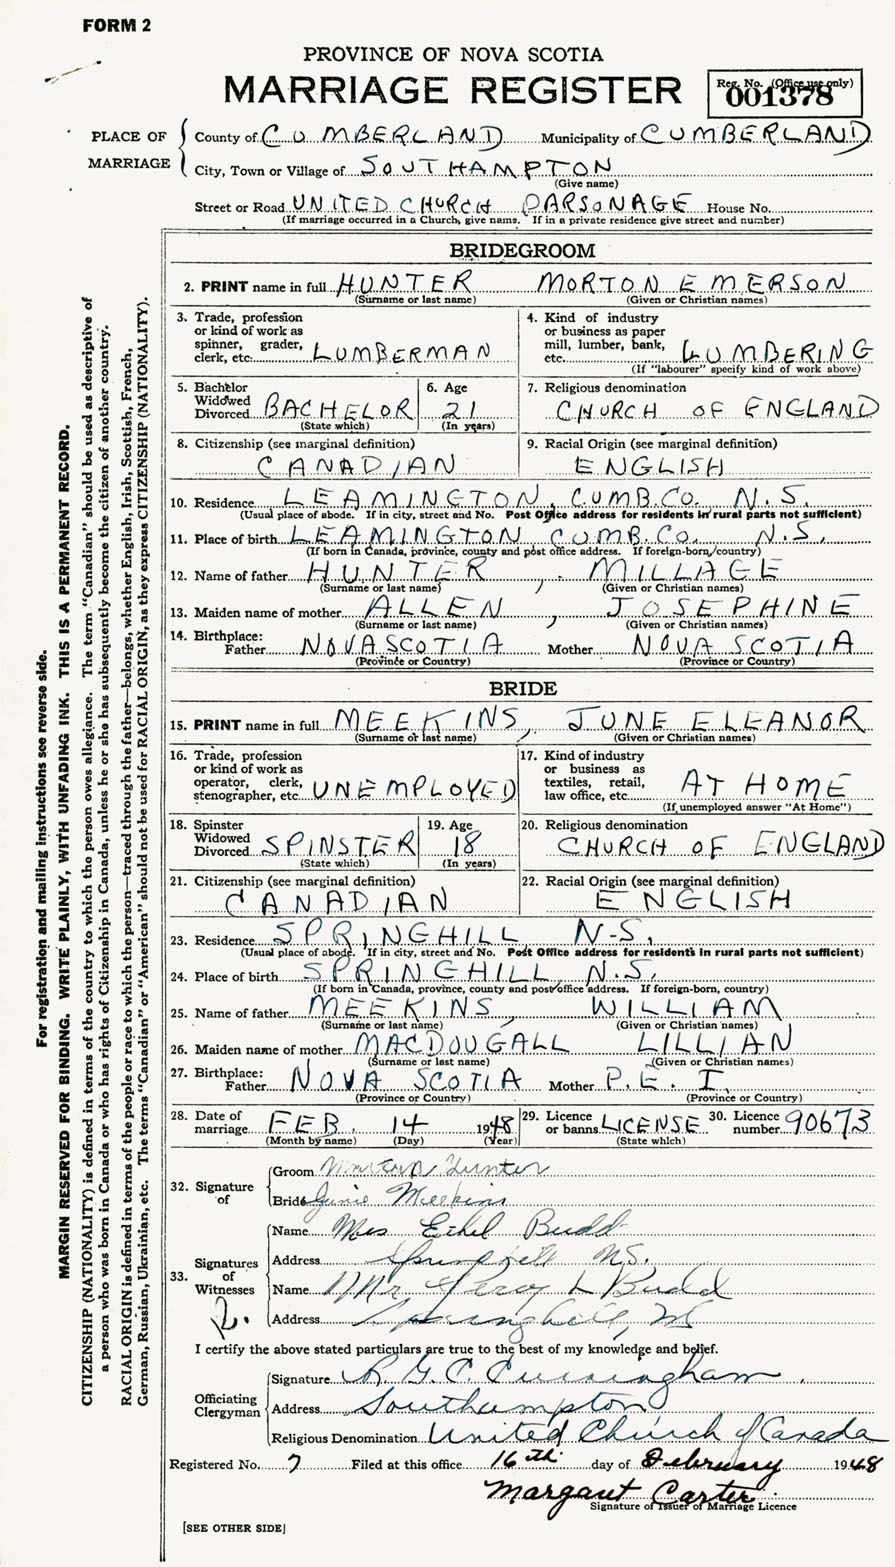 FORM 2
PROVINCE OF NOVA SCOTIA
MARRIAGE REGISTER
Reg. No. (Office use only)
001378
PLACE OF MARRIAGE
County of CUMBERLAND Municipality of CUMBERLAND
City, Town or Village of SOUTHAMPTON
(Give name)
Street or Road UNITED CHURCH PARSONAGE House No.
(If marriage occurred in a Church, give name. If in a private residence give street and number)
BRIDEGROOM
2. PRINT name in full HUNTER MORTON EMERSON
(Surname or last name) (Given or Christian names)
3. Trade, profession or kind of work as spinner, grader, clerk, etc. LUMBERMAN
4. Kind of industry or business as paper mill, lumber, bank, etc. LUMBERING
(If "labourer" specify kind of work above)
5. Bachelor Widowed Divorced BACHELOR
(State which)
6. Age 21
(In years)
7. Religious denomination
CHURCH OF ENGLAND
8. Citizenship (see marginal definition)
CANADIAN
9. Racial Origin (see marginal definition)
ENGLISH
10. Residence LEAMINGTON, CUMB. CO. N.S.
(Usual place of abode. If in city, street and No. Post Office address for residents in rural parts not sufficient)
11. Place of birth LEAMINGTON CUMB. CO. N.S.
(If born in Canada, province, county and post office address. If foreign-born, country)
12. Name of father HUNTER, MILLAGE
(Surname or last name) (Given or Christian names)
13. Maiden name of mother ALLEN, JOSEPHINE
(Surname or last name) (Given or Christian names)
14. Birthplace:
Father NOVA SCOTIA Mother NOVA SCOTIA
(Province or Country) (Province or Country)
BRIDE
15. PRINT name in full MEEKINS, JUNE ELEANOR
(Surname or last name) (Given or Christian names)
16. Trade, profession or kind of work as operator, clerk, stenographer, etc. UNEMPLOYED
17. Kind of industry or business as textiles, retail, law office, etc. AT HOME
(If unemployed answer "At Home")
18. Spinster Widowed Divorced SPINSTER
(State which)
19. Age 18
(In years)
20. Religious denomination
CHURCH OF ENGLAND
21. Citizenship (see marginal definition)
CANADIAN
22. Racial Origin (see marginal definition)
ENGLISH
23. Residence SPRINGHILL N.S.
(Usual place of abode. If in city, street and No. Post Office address for residents in rural parts not sufficient)
24. Place of birth SPRINGHILL N.S.
(If born in Canada, province, county and post office address. If foreign-born, country)
25. Name of father MEEKINS, WILLIAM
(Surname or last name) (Given or Christian names)
26. Maiden name of mother MACDOUGALL LILLIAN
(Surname or last name) (Given or Christian names)
27. Birthplace:
Father NOVA SCOTIA Mother P.E.I.
(Province or Country) (Province or Country)
28. Date of marriage FEB. 14 1948
(Month by name) (Day) (Year)
29. Licence or banns LICENSE
(State which)
30. Licence number 90673
32. Signature of
Groom Morton Hunter
Bride June Meekins
33. Signatures of Witnesses
Name Mrs Ethel Budd
Address Springhill N.S.
Name Mr. Percy L Budd
Address Springhill, NS
I certify the above stated particulars are true to the best of my knowledge and belief.
Officiating Clergyman
Signature R. G. C. Cunningham
Address Southampton
Religious Denomination United Church of Canada
Registered No. 7 Filed at this office 16th day of February 1948
Margaret Carter
Signature of Issuer of Marriage Licence
[SEE OTHER SIDE]
For registration and mailing instructions see reverse side.
MARGIN RESERVED FOR BINDING. WRITE PLAINLY, WITH UNFADING INK. THIS IS A PERMANENT RECORD.
CITIZENSHIP (NATIONALITY) is defined in terms of the country to which the person owes allegiance. The term "Canadian" should be used as descriptive of
a person who was born in Canada or who has rights of Citizenship in Canada, unless he or she has subsequently become the citizen of another country.
RACIAL ORIGIN is defined in terms of the people or race to which the person—traced through the father—belongs, whether English, Irish, Scottish, French,
German, Russian, Ukrainian, etc. The terms "Canadian" or "American" should not be used for RACIAL ORIGIN, as they express CITIZENSHIP (NATIONALITY).